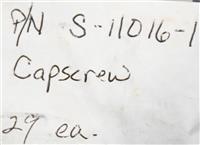 P/N S-11016-1
Capscrew
29 ea.